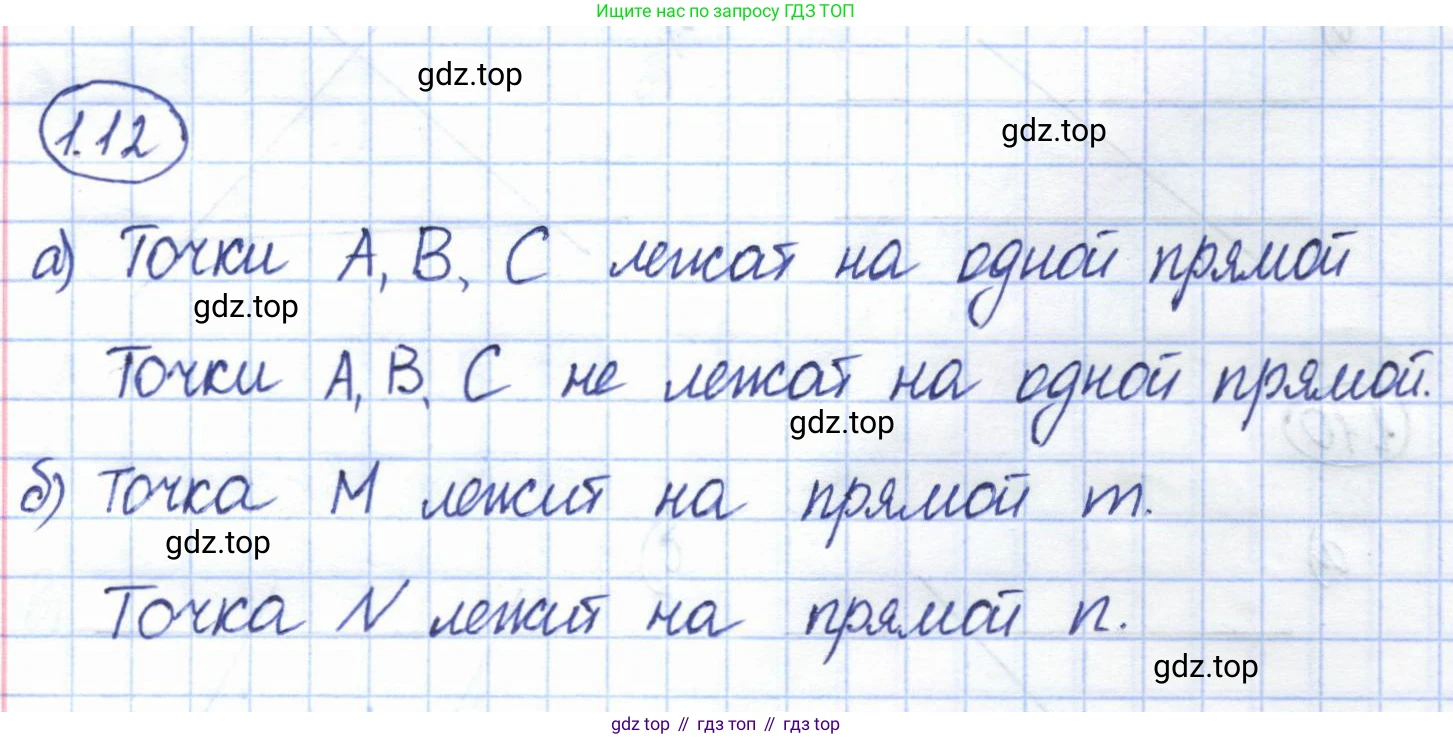 Ищите нас по запросу ГДЗ ТОП
gdz.top
1.12
gdz.top
а) Точки А, В, С лежат на одной прямой
gdz.top
Точки А, В, С не лежат на одной прямой.
gdz.top
б) Точка М лежит на прямой m.
gdz.top
Точка N лежит на прямой n.
gdz.top
gdz top // гдз топ // гдз top